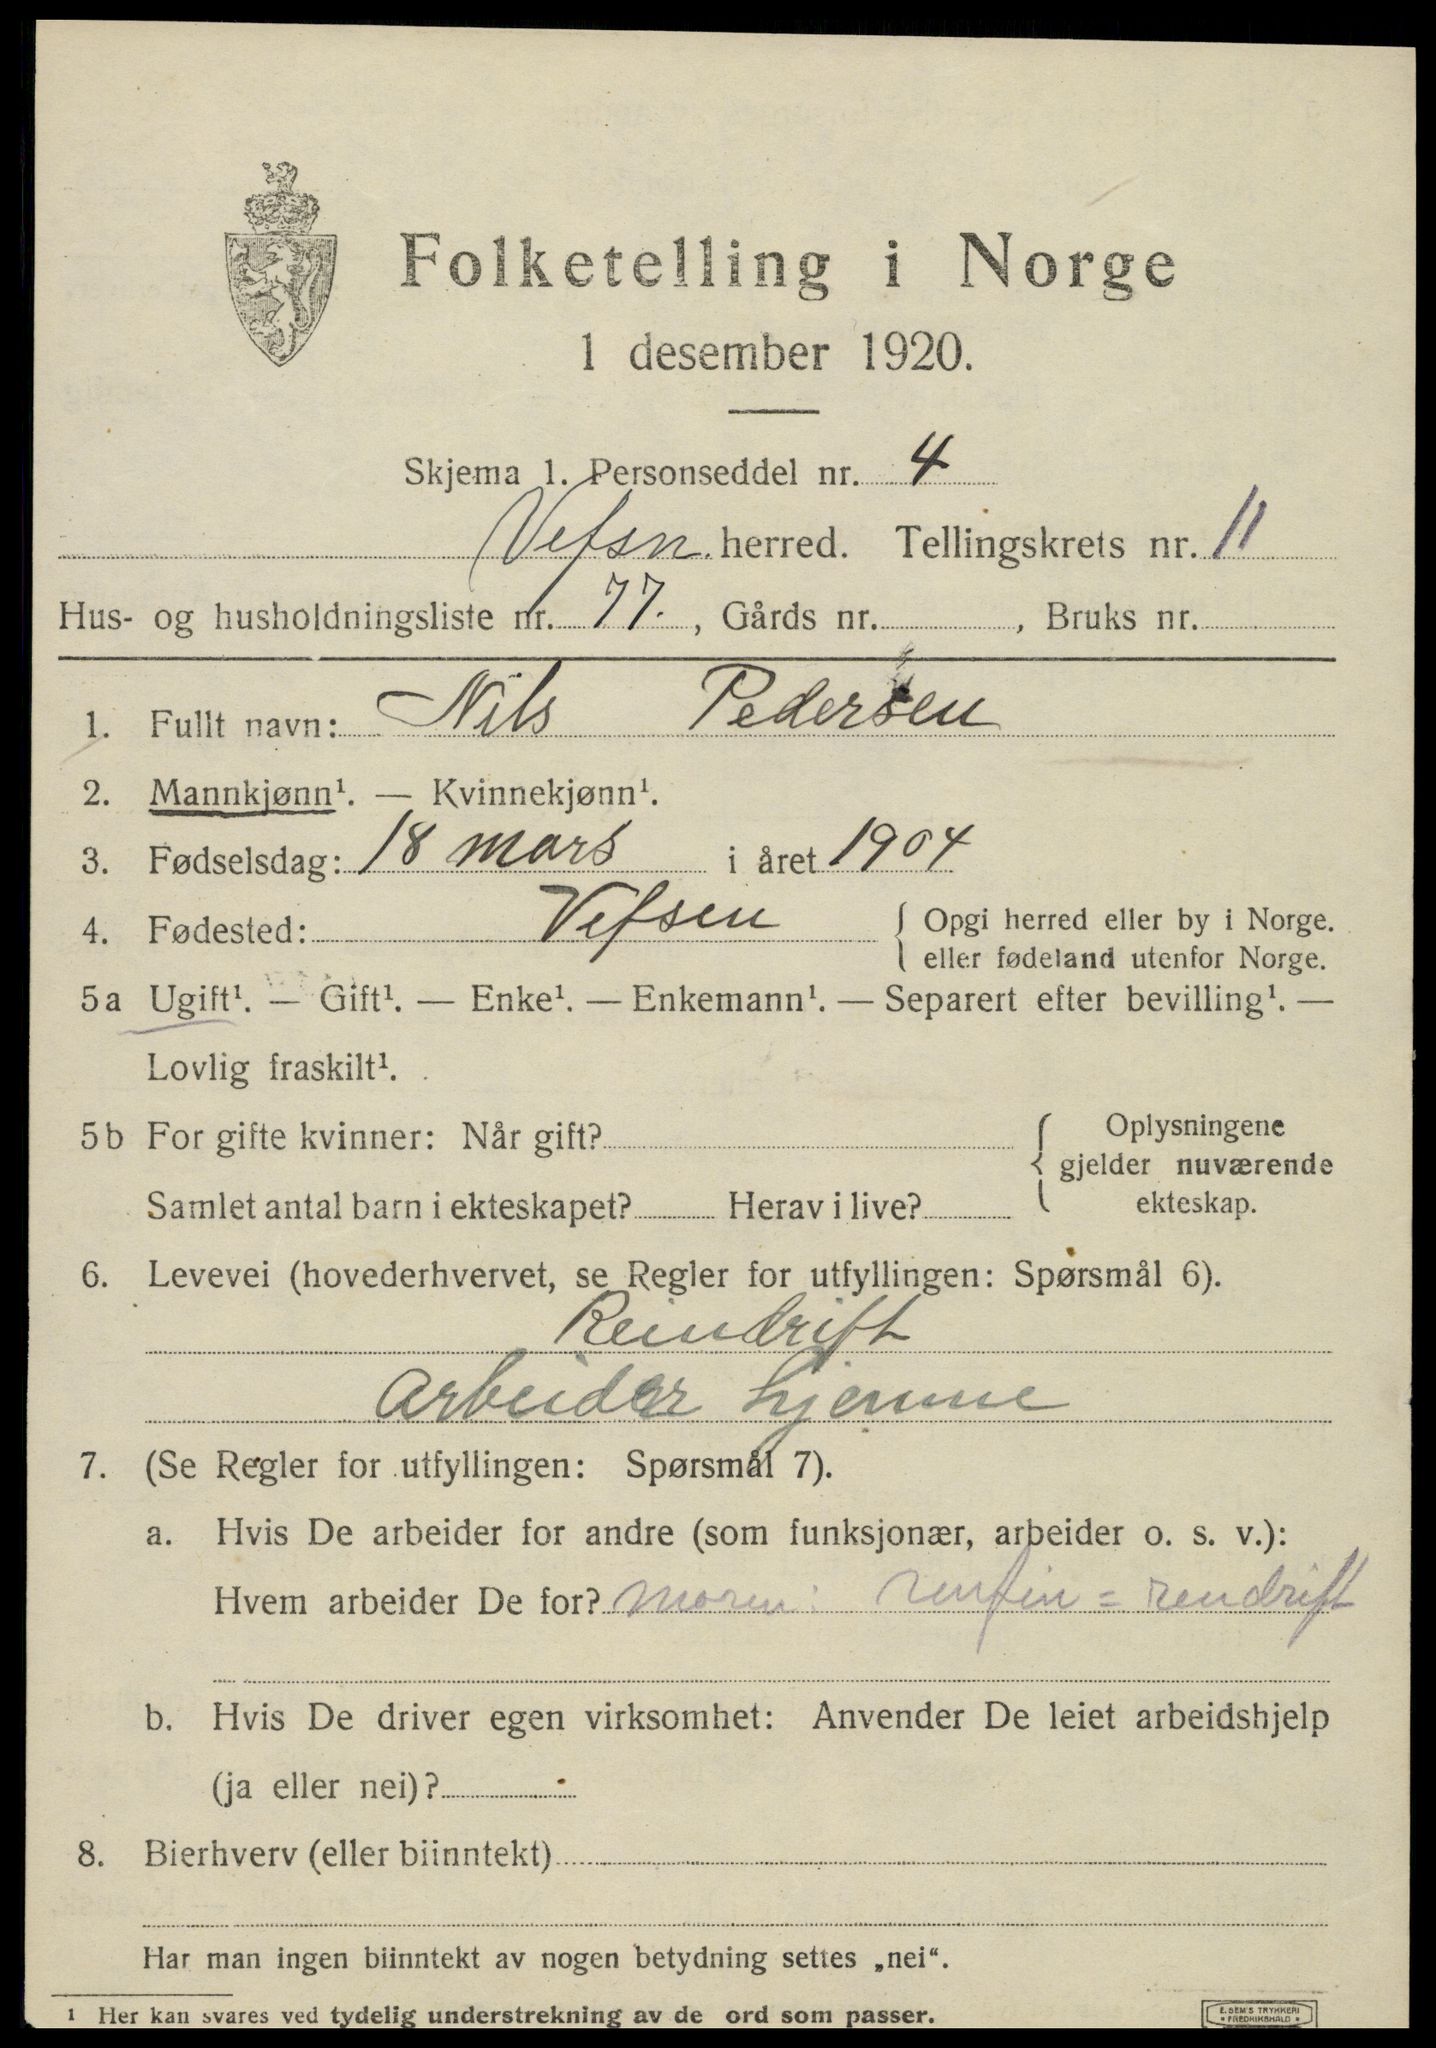 Folketelling i Norge
1 desember 1920.
Skjema 1. Personseddel nr. 4
Vefsn herred. Tellingskrets nr. 11
Hus- og husholdningsliste nr. 77. , Gårds nr. , Bruks nr.
1. Fullt navn: Nils Pedersen
2. Mannkjønn¹. — Kvinnekjønn¹.
3. Fødselsdag: 18 mars i året 1904
4. Fødested: Vefsen { Opgi herred eller by i Norge.
eller fødeland utenfor Norge.
5a Ugift¹. — Gift¹. — Enke¹. — Enkemann¹. — Separert efter bevilling¹. —
Lovlig fraskilt¹.
5b For gifte kvinner: Når gift? { Oplysningene
gjelder nuværende
Samlet antal barn i ekteskapet? Herav i live? ekteskap.
6. Levevei (hovederhvervet, se Regler for utfyllingen: Spørsmål 6).
Reindrift
Arbeider hjemme
7. (Se Regler for utfyllingen: Spørsmål 7).
a. Hvis De arbeider for andre (som funksjonær, arbeider o. s. v.):
Hvem arbeider De for? moren: = rendrift
b. Hvis De driver egen virksomhet: Anvender De leiet arbeidshjelp
(ja eller nei)?
8. Bierhverv (eller biinntekt)
Har man ingen biinntekt av nogen betydning settes „nei“.
¹ Her kan svares ved tydelig understrekning av de ord som passer.
E. SEM'S TRYKKERI
* FREDRIKSHALD *